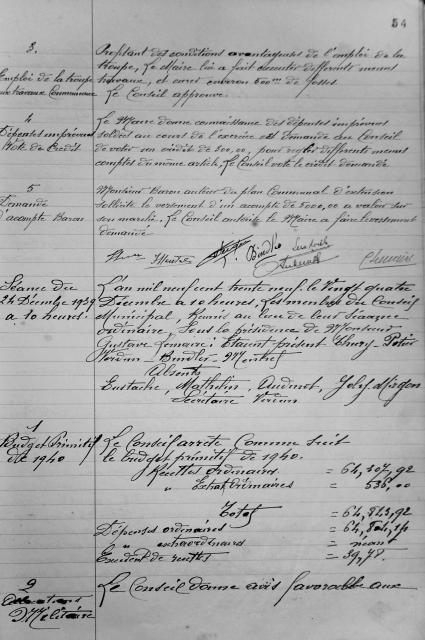 54
3.
Emploi de la troupe
aux travaux Communaux
Profitant des conditions avantageuses de l'emploi de la
troupe, Le Maire lui a fait exécuter différents menus
travaux, et curer environ 500 de fossés.
Le Conseil approuve.
4
Dépenses imprévues
Vote de Crédit
Le Maire donne connaissance des dépenses imprévues
soldées au cours de l'exercice et demande au Conseil
de voter un crédit de 500,00, pour régler différents menus
comptes du même article, Le Conseil vote le crédit demandé.
5
Demande
d'acompte Baron
Monsieur Baron auteur du plan Communal d'extension
sollicite le versement d'un acompte de 5000,00 à valoir sur
son marché. Le Conseil autorise le Maire à faire le versement
demandé
Séance du
24 Décembre 1939
à 10 heures.
L'an mil neuf cent trente neuf, le Vingt quatre
Décembre à 10 heures, Les membres du Conseil
Municipal, Réunis au lieu de leur Séance
ordinaire, Sous la présidence de Monsieur
Gustave Lemaire: Etaient présent Thury
Verdun - Bindler -
Absents
Eustache, Mathelin,
Secrétaire Verdun
1
Budget Primitif
de 1940
Le Conseil arrête Comme suit
le budget primitif de 1940.
Recettes Ordinaires =
" Extraordinaires =
Total =
Dépenses ordinaires =
" extraordinaires néant
Excédent de recettes = 39,78.
2
Militaire
Le Conseil donne avis favorable aux